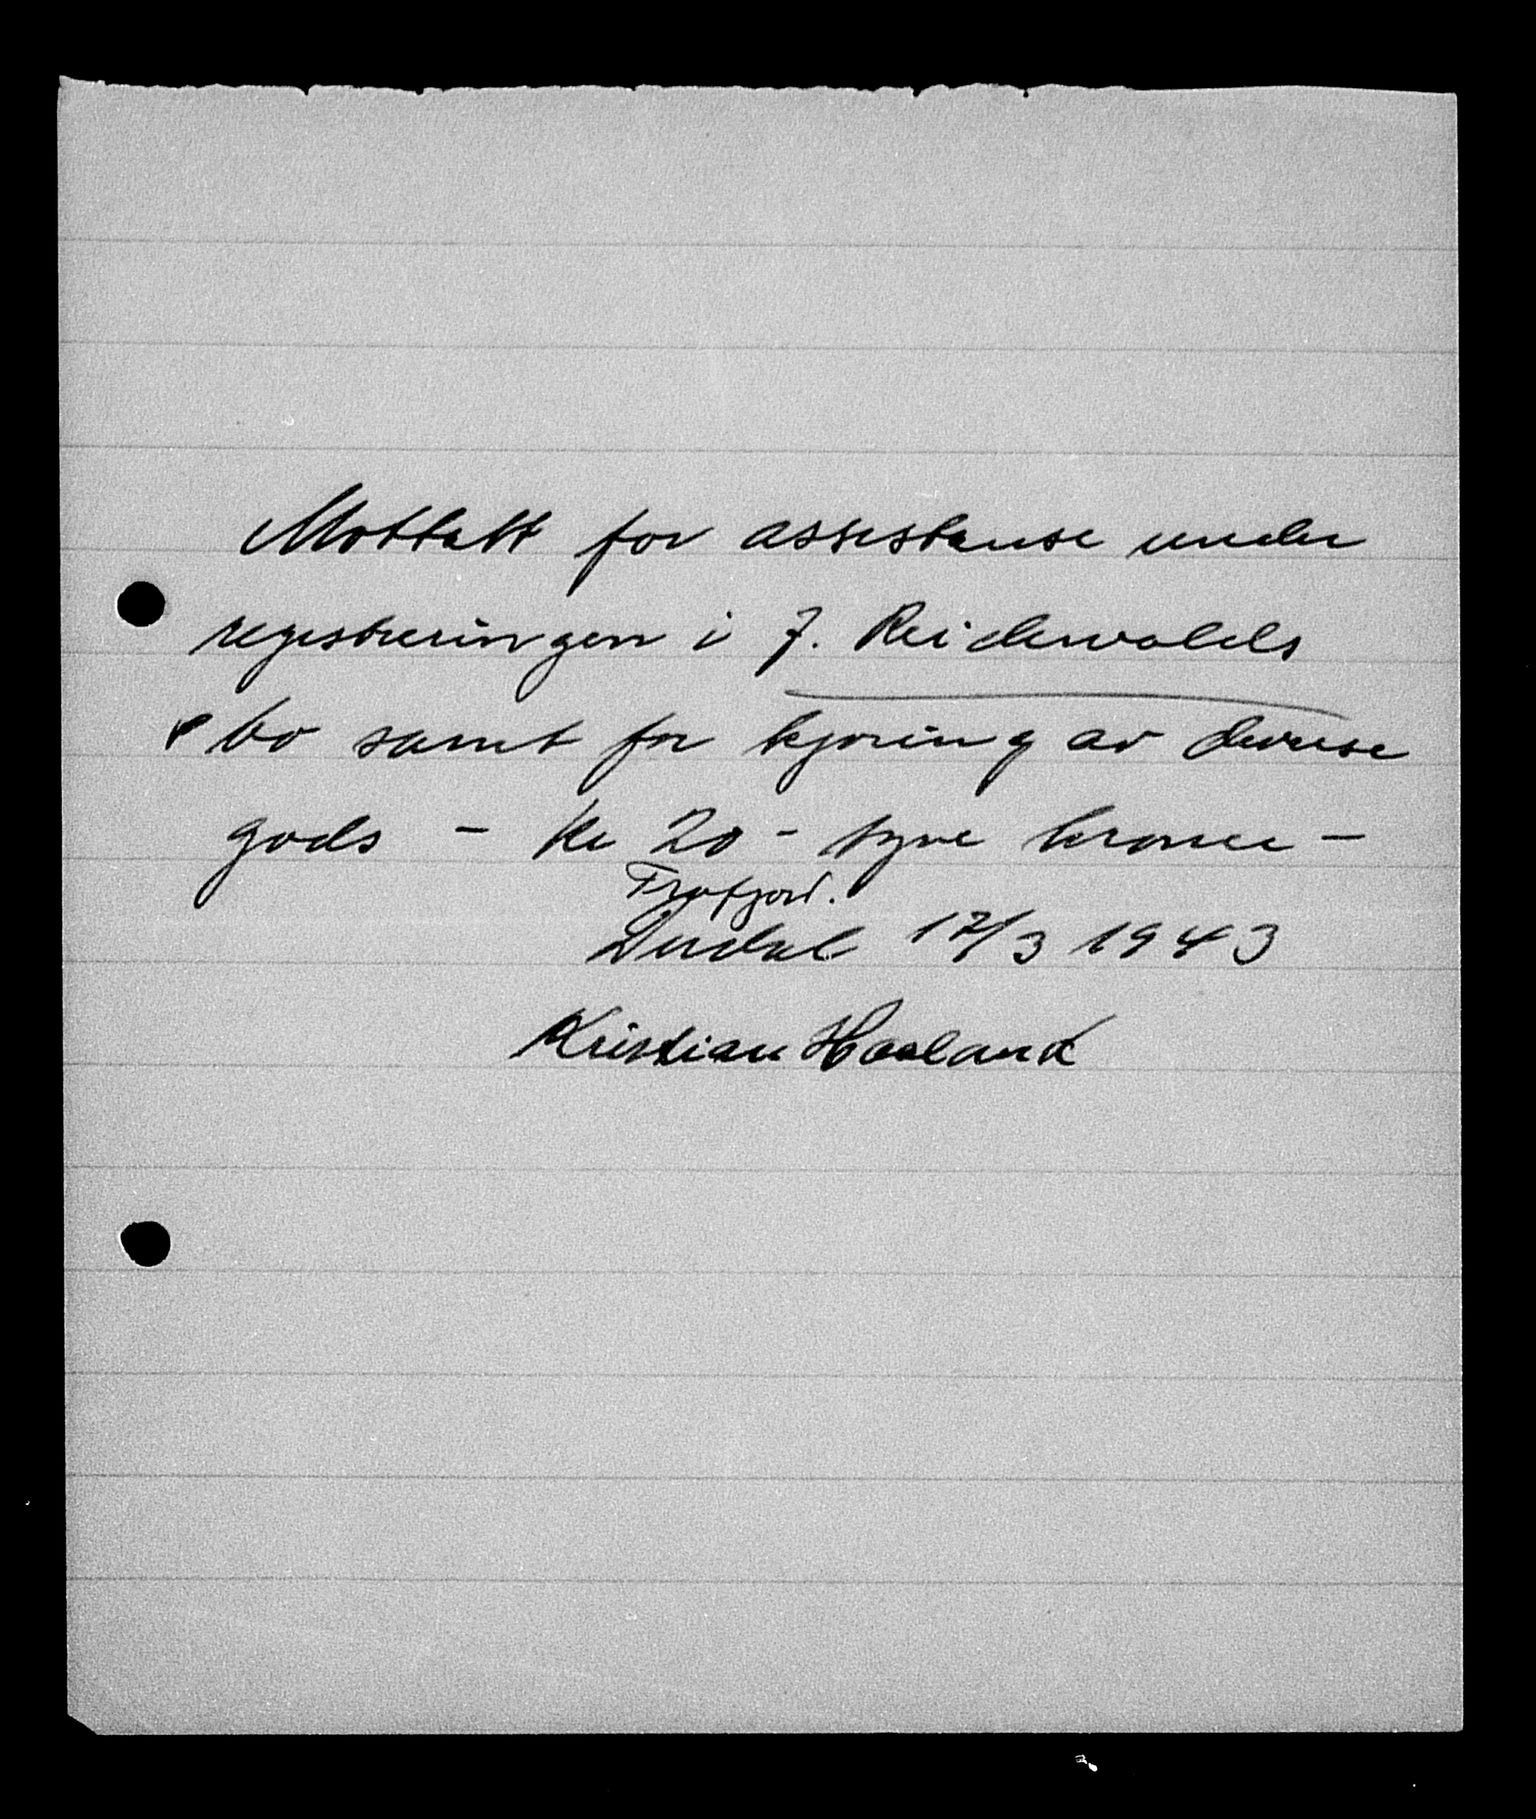 Mottatt for assistanse under
registreringen i J. Reidewalds
bo samt for kjøring av dennes
gods - kr 20 - tyve kroner -
Frafjord.
Dirdal 17/3 1943
Kristian Haaland